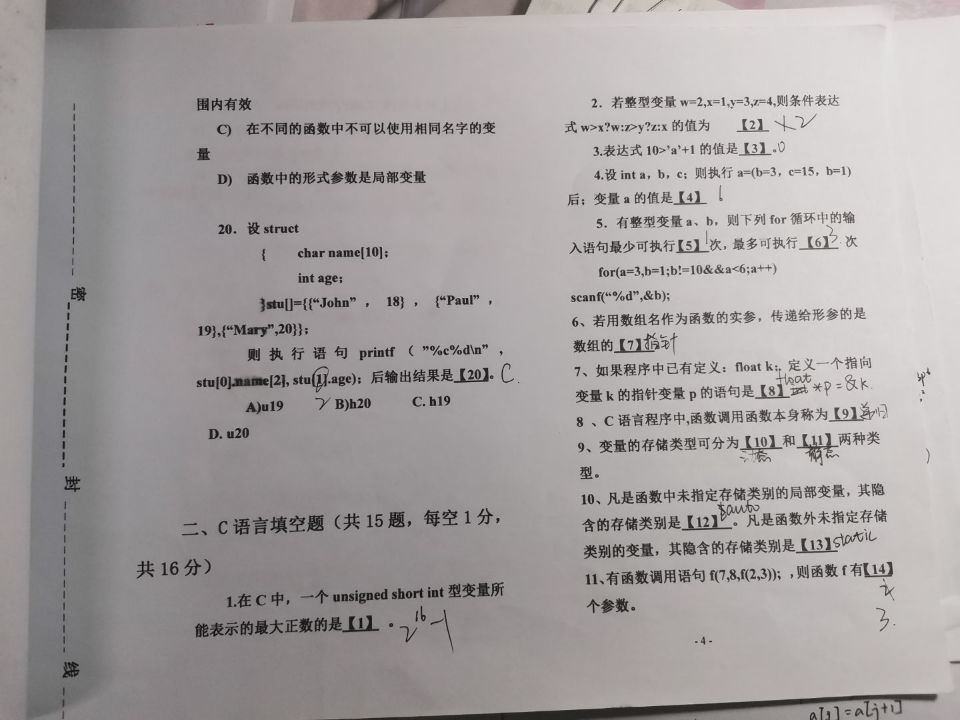 围内有效
C) 在不同的函数中不可以使用相同名字的变
量
D) 函数中的形式参数是局部变量
20. 设 struct
{ char name[10];
int age;
}stu[]={{“John”, 18}, {“Paul”,
19},{“Mary”,20}};
则执行语句 printf (”%c%d\n”,
stu[0].name[2], stu[1].age); 后输出结果是【20】。C.
2
A)u19 B)h20 C. h19
D. u20
二、C 语言填空题（共 15 题，每空 1 分，
共 16 分）
1.在 C 中，一个 unsigned short int 型变量所
能表示的最大正数的是【1】。2^16-1
密
封
线
2. 若整型变量 w=2,x=1,y=3,z=4,则条件表达
式 w>x?w:z>y?z:x 的值为 【2】 2
3.表达式 10>’a’+1 的值是【3】。0
4.设 int a，b，c；则执行 a=(b=3，c=15，b=1)
后；变量 a 的值是【4】 1
5. 有整型变量 a、b，则下列 for 循环中的输
入语句最少可执行【5】1次，最多可执行【6】3次
for(a=3,b=1;b!=10&&a<6;a++)
scanf(“%d”,&b);
6、若用数组名作为函数的实参，传递给形参的是
数组的【7】指针
7、如果程序中已有定义：float k;，定义一个指向
变量 k 的指针变量 p 的语句是【8】float *p=&k.
8 、C 语言程序中,函数调用函数本身称为【9】
9、变量的存储类型可分为【10】和【11】两种类
动态 静态
型。
10、凡是函数中未指定存储类别的局部变量，其隐
含的存储类别是【12】auto。凡是函数外未指定存储
类别的变量，其隐含的存储类别是【13】static
11、有函数调用语句 f(7,8,f(2,3)); ,则函数 f 有【14】
个参数。
3.
- 4 -
a[j]=a[j+1]